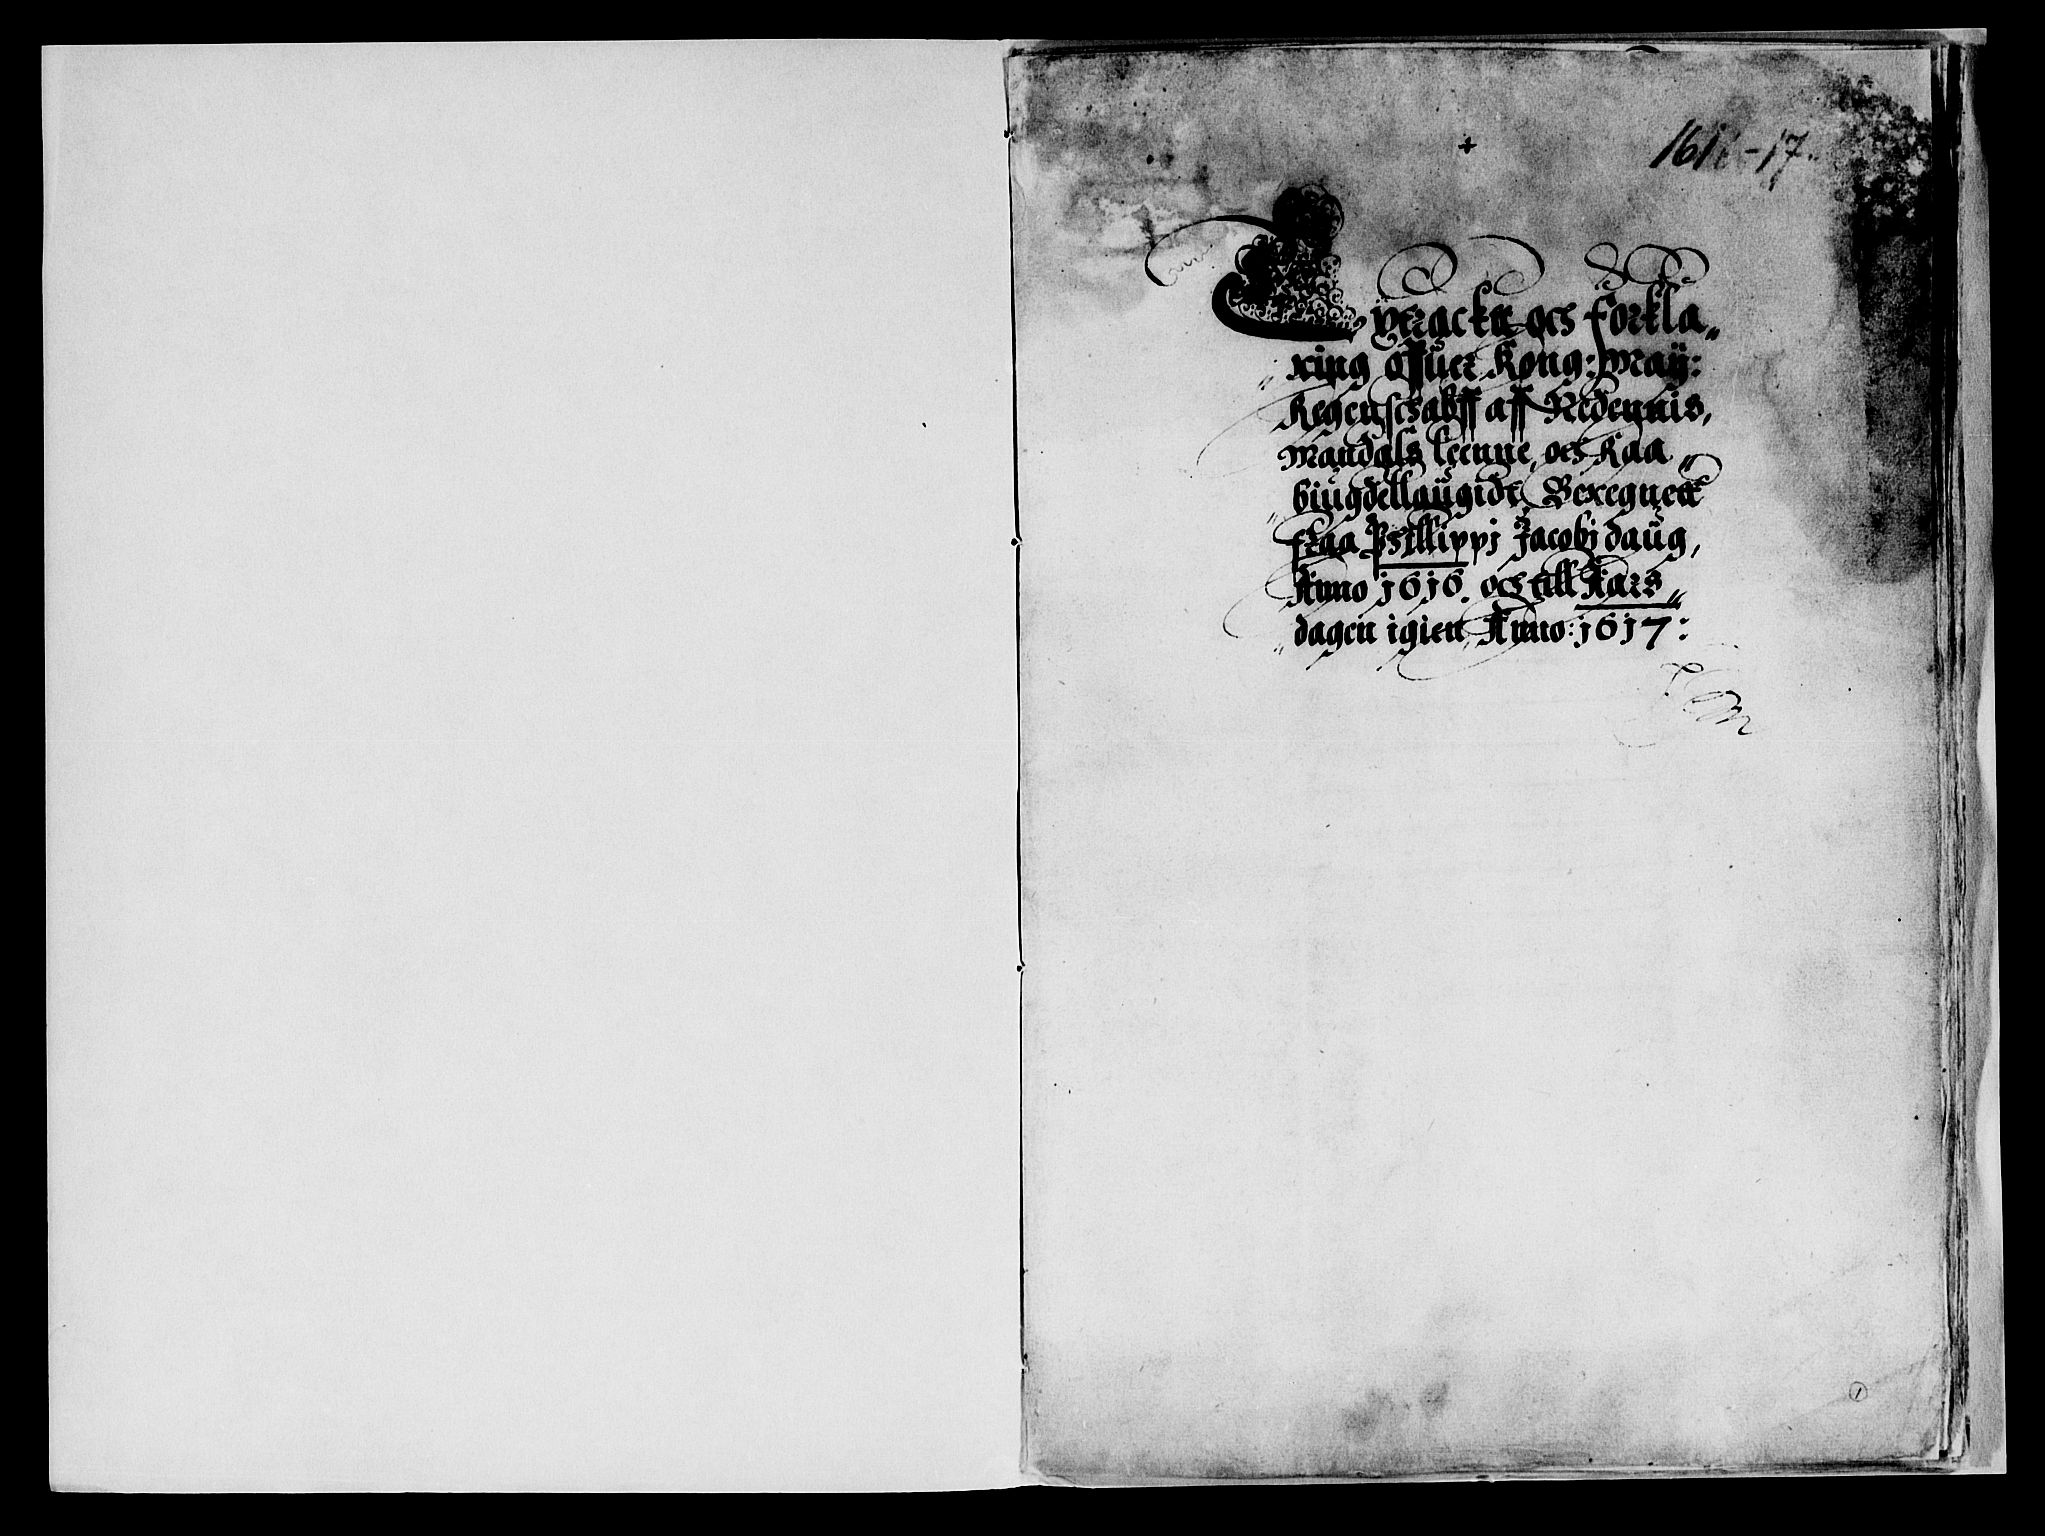 +
1616-17.
Exträckt och forkla„
ring offuer Kong: May:
Regenschabff aff Nedennis,
Mandals leenne, och Raa„
biugdellaugidt, Beregnett
fraa Phillippi Jacobi daug,
Anno 1616. och till Aars„
dagen igien Anno: 1617:
1